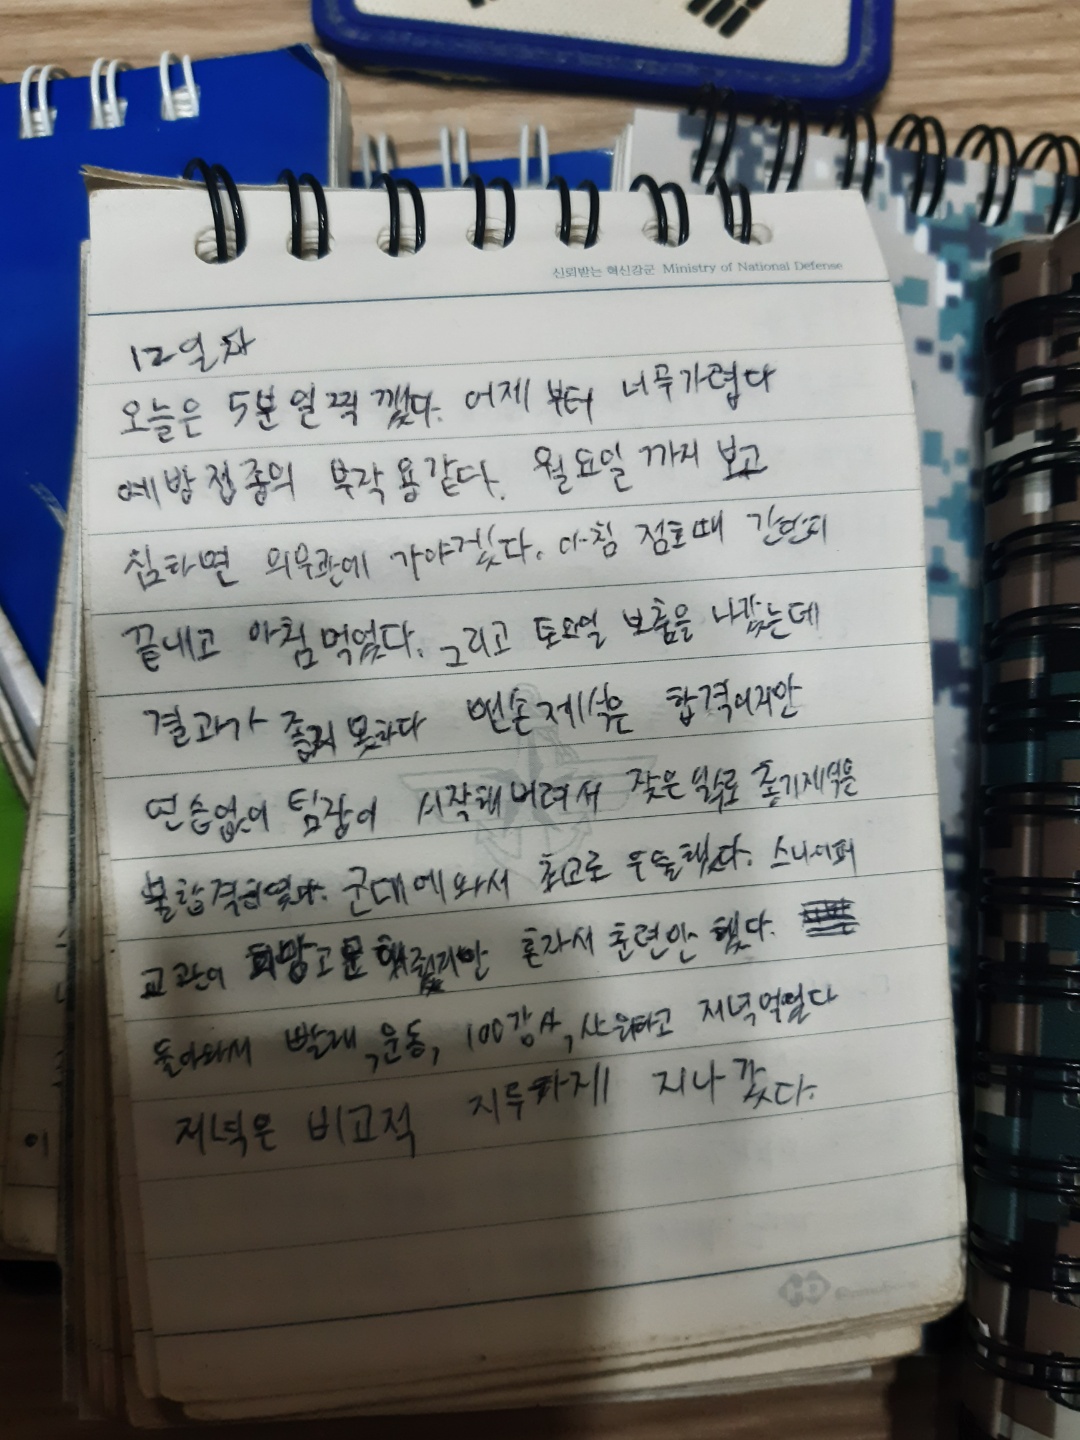 신뢰받는 혁신강군 Ministry of National Defense
12일차
오늘은 5분 일찍 깼다. 어제 부터 너무가렵다
예방접종의 부작용같다. 월요일 까지 보고
심하면 의무관에 가야겠다. 아침 점호때 간단히
끝내고 아침먹었다. 그리고 토요일 보충을 나갔는데
결과가 좋지 못하다 맨손제식은 합격이지만
연습없이 팀장이 시작해버려서 잦은 실수로 총기제식은
불합격하였다. 군대에와서 최고로 우울했다. 스나이퍼
교관이 희망고문 해줬지만 혼자서 훈련만 했다.
돌아와서 빨래, 운동, 100감사, 샤워하고 저녁먹었다
저녁은 비교적 지루하게 지나갔다.
이